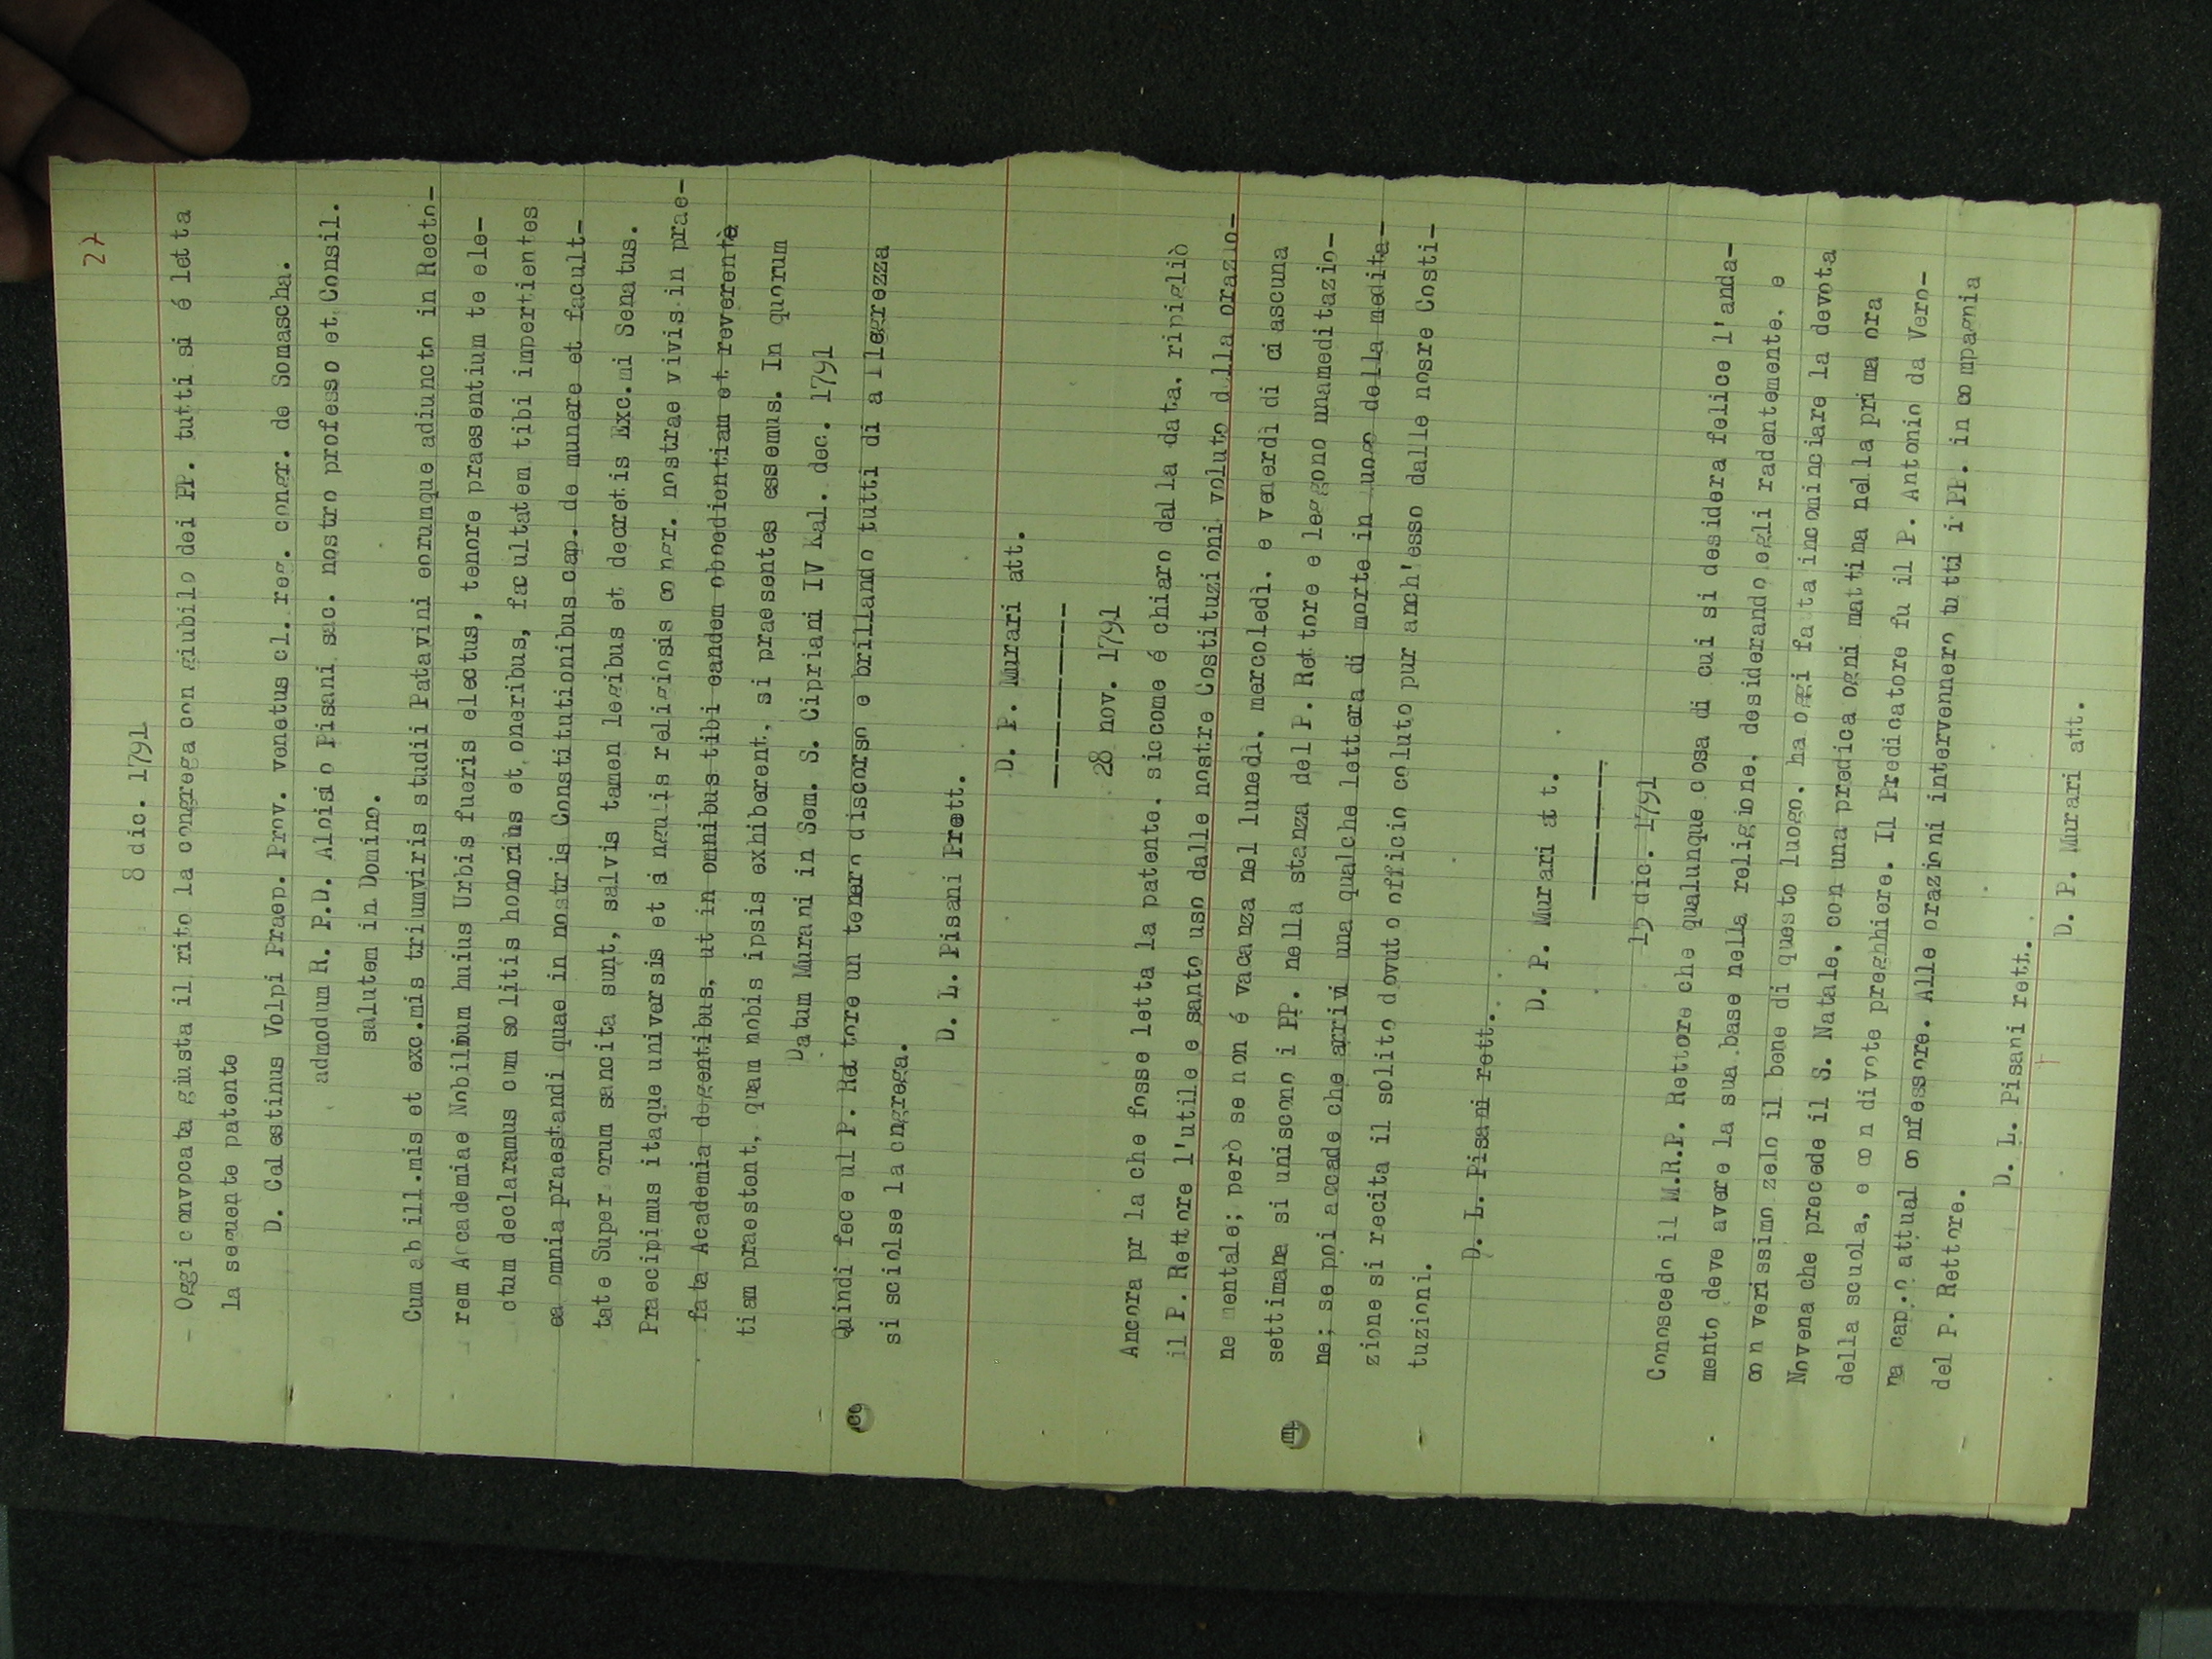 27
8 dic. 1791
- Oggi convocata giusta il rito la congrega con giubilo dei PP. tutti si é letta
la seguente patente
D. Calestinus Volpi Praep. Prov. venetus cl. reg. congr. de Somascha.
admodum R. P.D. Aloisio Pisani sac. nostro professo et Consil.
salutem in Domino.
Cum ab ill.mis et exc.mis triumviris studii Patavini eorumque adiuncto in Recto-
rem Accademiae Nobilium huius Urbis fueris electus, tenore praesentium te ele-
ctum declaramus cum solitis honoribus et oneribus, facultatem tibi impertientes
ea omnia praestandi quae in nostris Constitutionibus cap. de munere et facult-
tate Superiorum sancita sunt, salvis tamen legibus et decretis Exc.mi Senatus.
Praecipimus itaque universis et singulis religiosis congr. nostrae vivis in prae-
fata Academia degentibus, ut in omnibus tibi eandem oboedientiam et reverentè
tiam praestent, quam nobis ipsis exhiberent, si praesentes essemus. In quorum
Datum Murani in Sem. S. Cipriani IV Kal. dec. 1791
Quindi fece ul P. Rettore un tenero discorso e brillando tutti di allegrezza
si sciolse la congrega.
D. L. Pisani Prett.
D. P. Murari att.
28 nov. 1791
Ancora pr la che fosse letta la patente, siccome é chiaro dalla data, ripigliò
il P. Rettore l'utile e santo uso dalle nostre Costituzioni voluto della orazio-
ne mentale; però se non é vacanza nel lunedì, mercoledì, e venerdì di ciascuna
settimana si uniscono i PP. nella stanza del P. Rettore e leggono unameditazio-
ne; se poi accade che arrivi una qualche lettera di morte in uogo della medita-
zione si recita il solito dovuto officio coluto pur anch'esso dalle nosre Costi-
tuzioni.
D. L. Pisani rett.
D. P. Murari att.
15 dic. 1791
Conoscedo il M.R.P. Rettore che qualunque cosa di cui si desidera felice l'anda-
mento deve avere la sua base nella religione, desiderando egli radentemente, e
con verissimo zelo il bene di questo luogo, ha oggi fatta incominciare la devota
Novena che precede il S. Natale, con una predica ogni mattina nella prima ora
della scuola, e con divote preghhiere. Il Predicatore fu il P. Antonio da Vero-
na cap.o attual confessore. Alle orazioni intervennero tutti i PP. in compagnia
del P. Rettore.
D. L. Pisani rett.
D. P. Murari att.